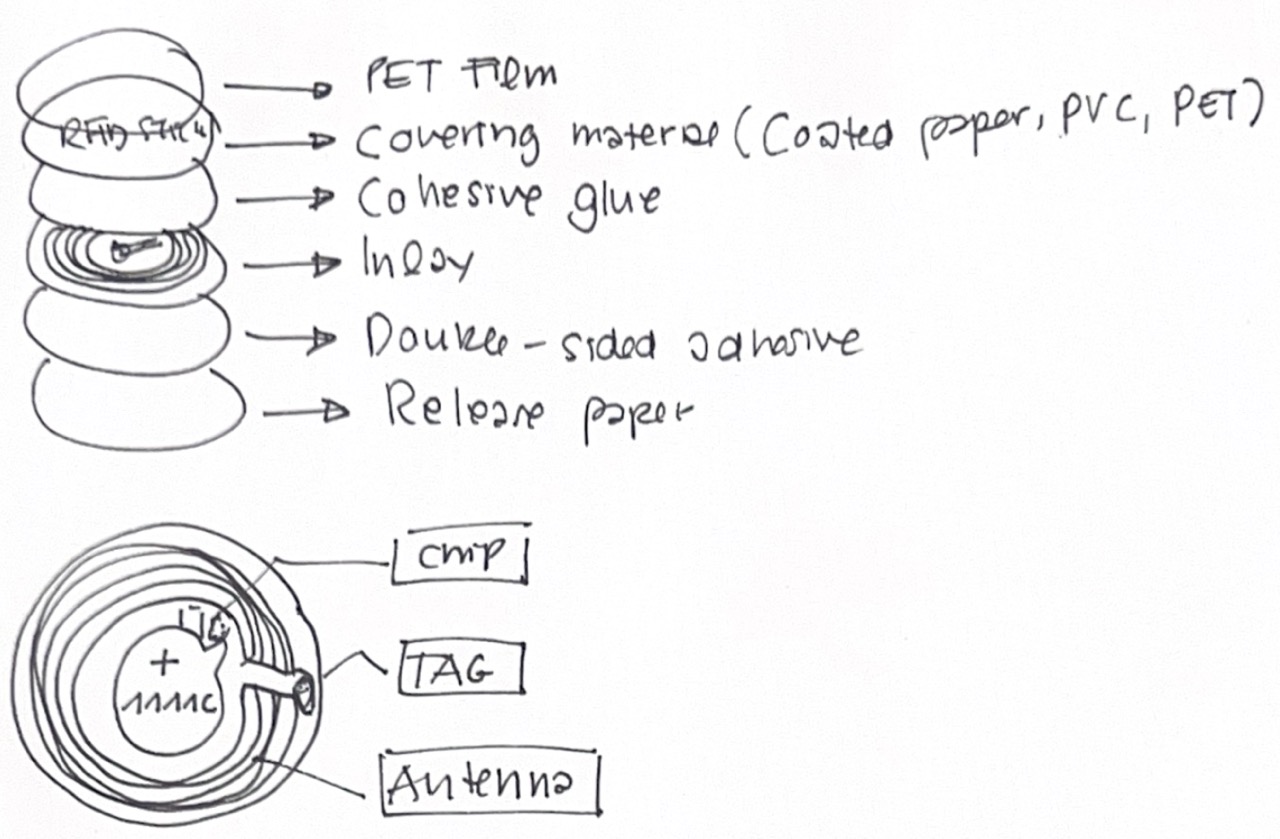 PET Film
RFID
Covering material (Coated paper, PVC, PET)
Cohesive glue
Inlay
Double-sided adhesive
Release paper
chip
TAG
+
Antenna